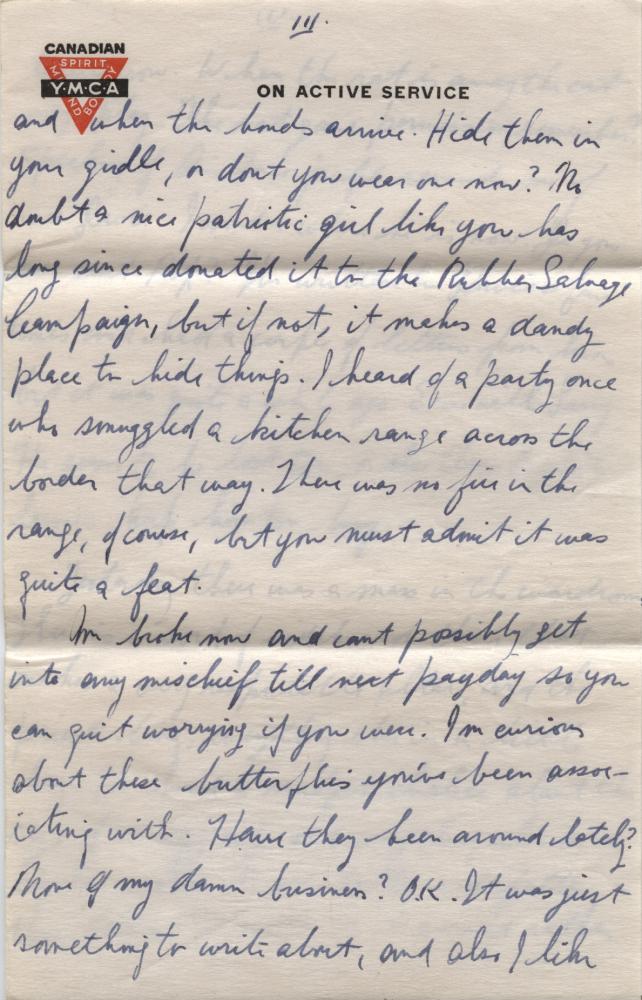 III.
CANADIAN
SPIRIT
MIND
BODY
Y·M·C·A
ON ACTIVE SERVICE
and when the bonds arrive. Hide them in
your girdle, or dont you wear one now? No
doubt a nice patriotic girl like you has
long since donated it to the Rubber Salvage
Campaign, but if not, it makes a dandy
place to hide things. I heard of a party once
who smuggled a kitchen range across the
border that way. There was no fire in the
range, of course, but you must admit it was
quite a feat.
Im broke now and cant possibly get
into any mischief till next payday so you
can quit worrying if you were. Im curious
about these butterflies you've been assoc-
iating with. Have they been around lately?
None of my damn business? O.K. It was just
something to write about, and also I like